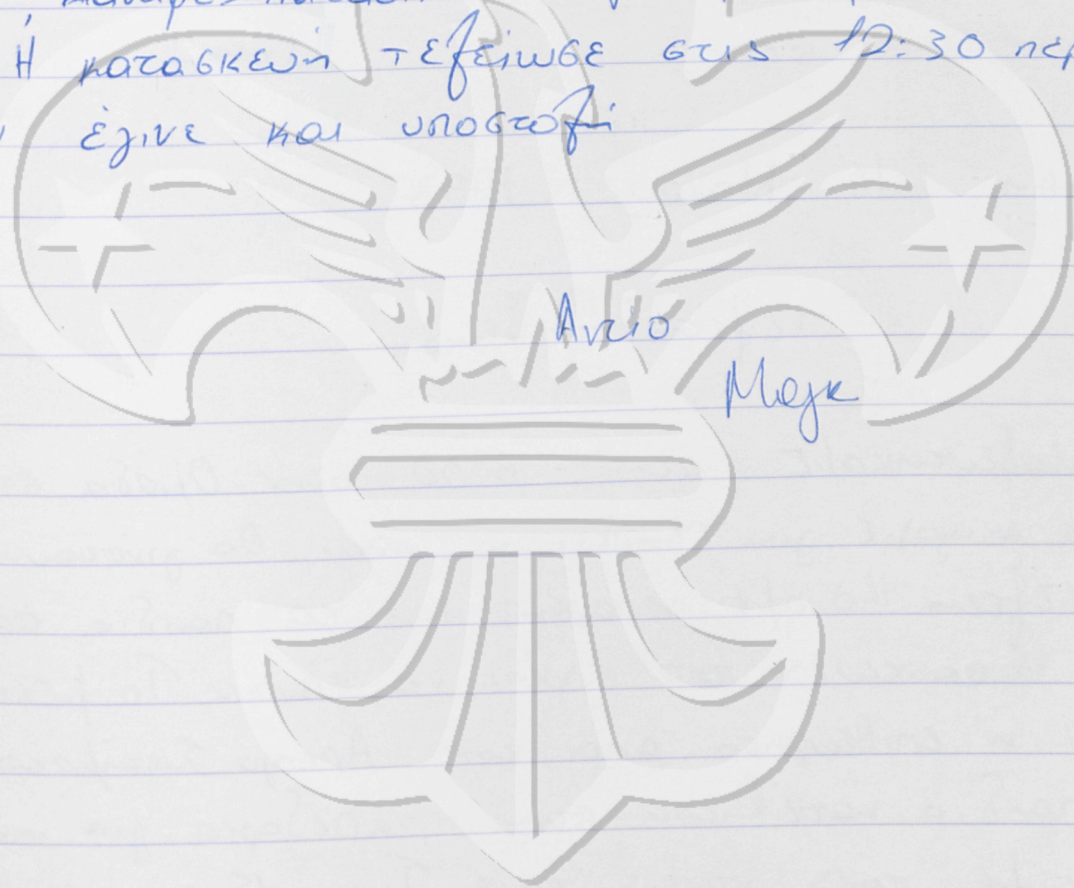 Η κατασκευή τελείωσε στις 12:30
έγινε και υποστολή
Αντιο
Μαικ